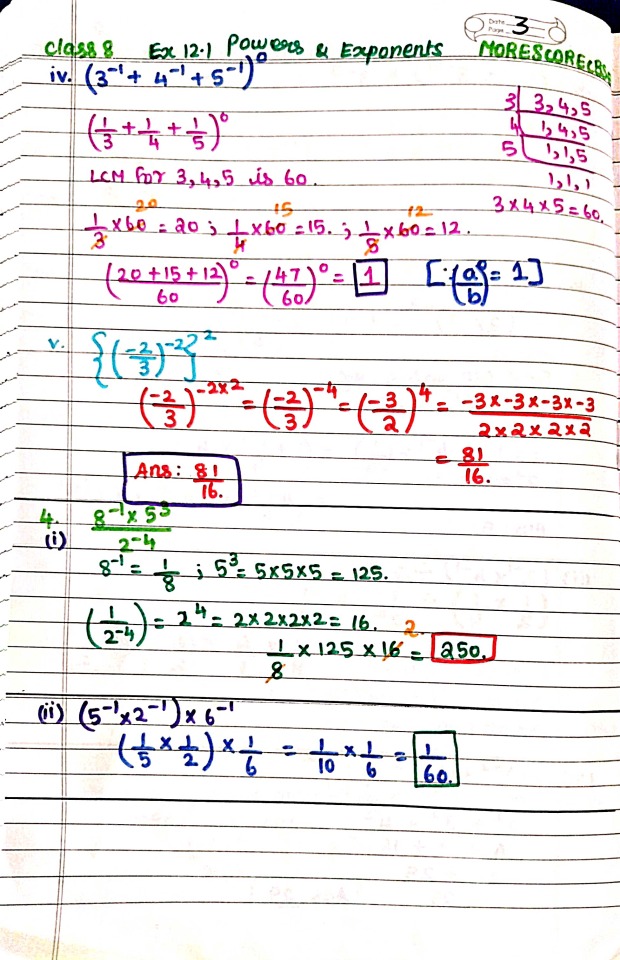 Date
Page 3
class 8 Ex 12.1 Powers & Exponents MORESCORECBSE
iv. (3⁻¹ + 4⁻¹ + 5⁻¹)⁰
(1/3 + 1/4 + 1/5)⁰
3 | 3,4,5
4 | 1,4,5
5 | 1,1,5
1,1,1
3 x 4 x 5 = 60.
LCM for 3,4,5 is 60.
20 15 12
1/3 x 60 = 20 ; 1/4 x 60 = 15. ; 1/5 x 60 = 12.
((20 + 15 + 12)/60)⁰ = (47/60)⁰ = 1 [∵ (a/b)⁰ = 1]
v. {(-2/3)⁻²}²
(-2/3)⁻²ˣ² = (-2/3)⁻⁴ = (-3/2)⁴ = (-3 x -3 x -3 x -3)/(2 x 2 x 2 x 2)
= 81/16.
Ans: 81/16.
4. (8⁻¹ x 5³)/2⁻⁴
(i)
8⁻¹ = 1/8 ; 5³ = 5x5x5 = 125.
(1/2⁻⁴) = 2⁴ = 2x2x2x2 = 16.
2
1/8 x 125 x 16 = 250.
(ii) (5⁻¹ x 2⁻¹) x 6⁻¹
(1/5 x 1/2) x 1/6 = 1/10 x 1/6 = 1/60.